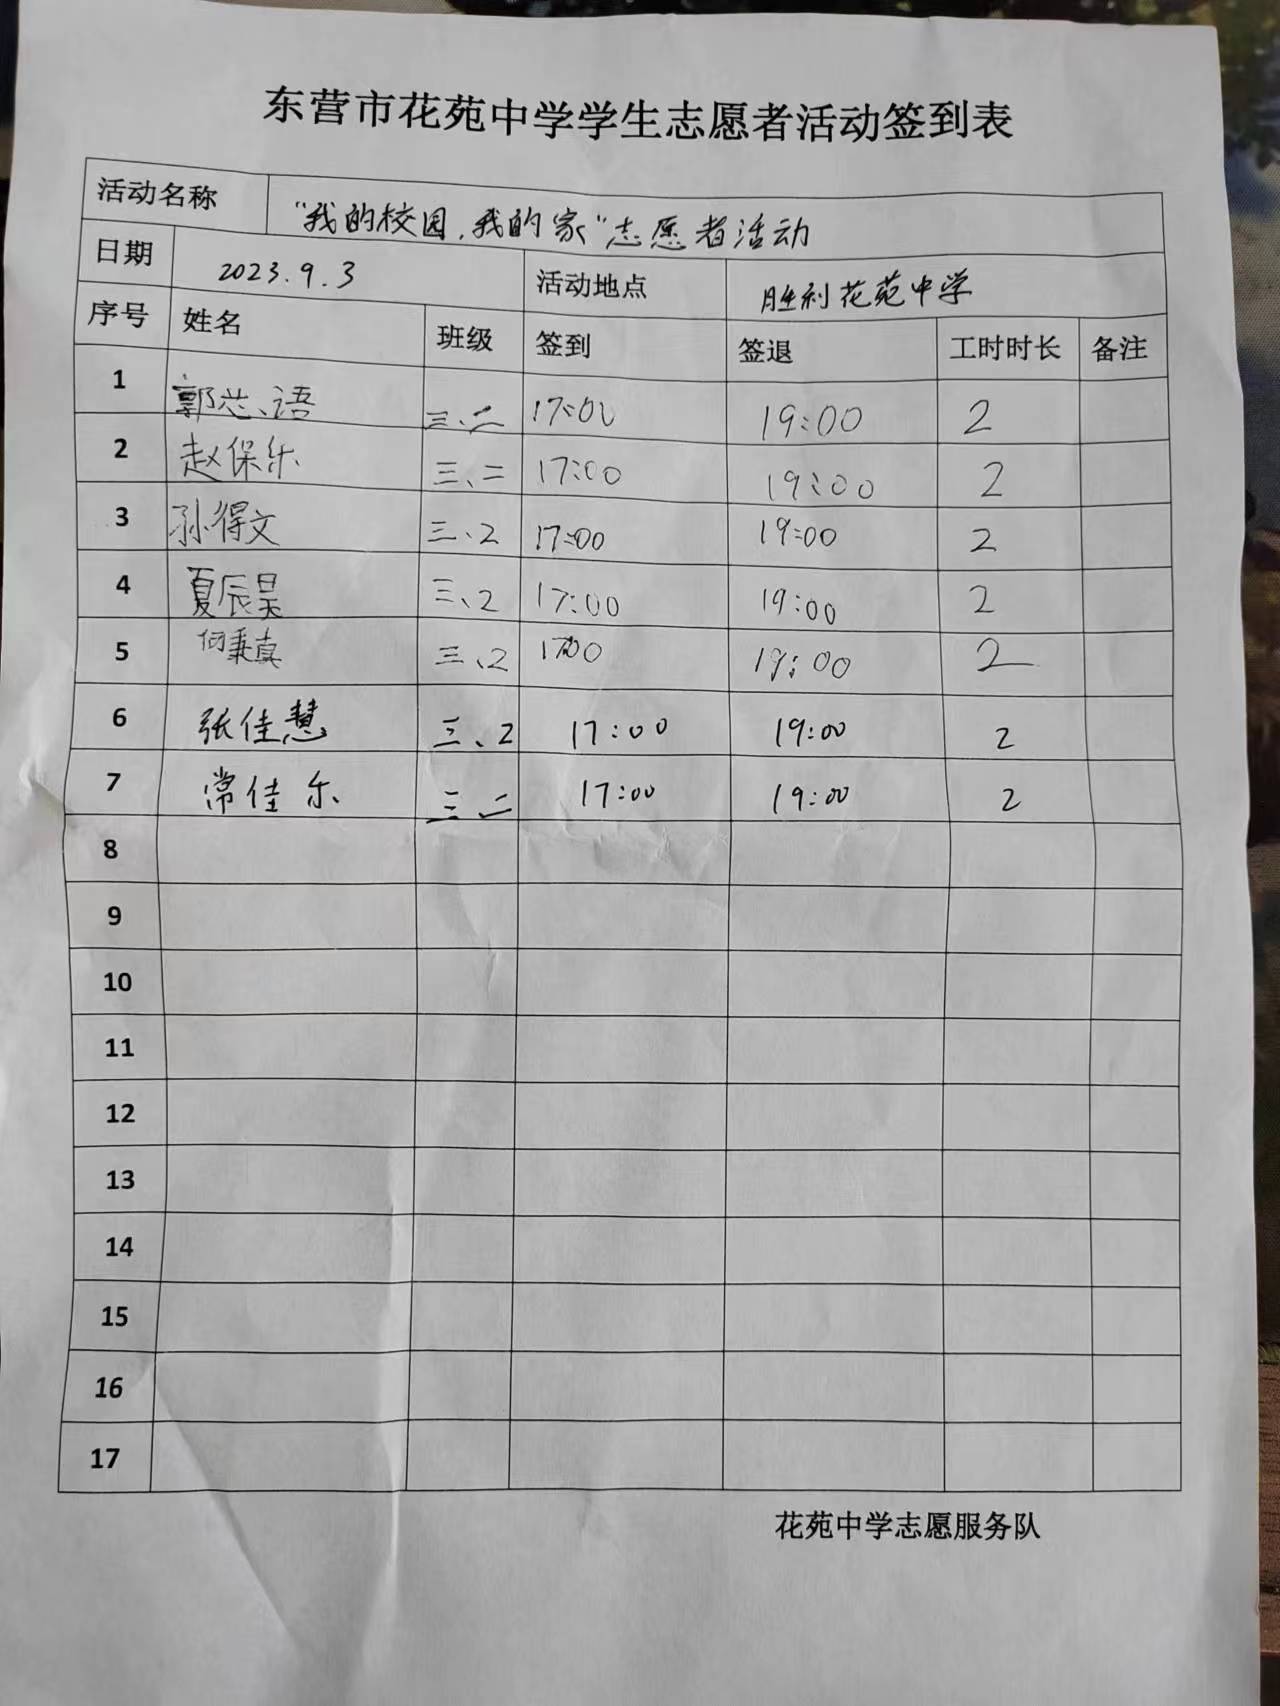 东营市花苑中学学生志愿者活动签到表
活动名称 “我的校园,我的家”志愿者活动
日期 2023.9.3 活动地点 胜利花苑中学
序号 姓名 班级 签到 签退 工时时长 备注
1 郭芯语 三、二 17:00 19:00 2
2 赵保乐 三、二 17:00 19:00 2
3 孙得文 三、2 17:00 19:00 2
4 夏辰昊 三、2 17:00 19:00 2
5 何秉真 三、2 1700 19:00 2
6 张佳慧 三、2 17:00 19:00 2
7 常佳乐 三、二 17:00 19:00 2
8
9
10
11
12
13
14
15
16
17
花苑中学志愿服务队